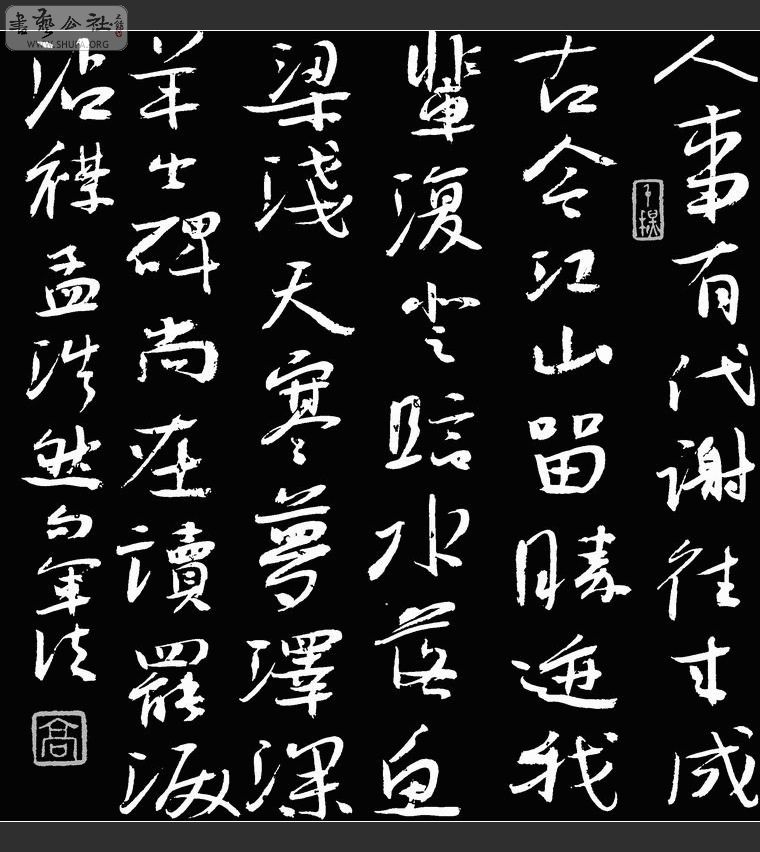 書藝公社
WWW.SHUFA.ORG
人事有代謝往来成
古今江山留勝迹我
輩復登臨水落魚
梁淺天寒夢澤深
羊公碑尚在讀罷淚
沾襟孟浩然句軍